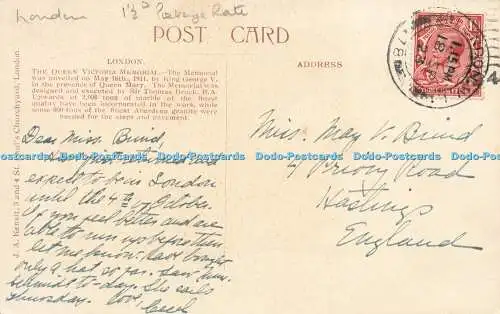 London 1½d Postage Rate
POST CARD
LONDON.
THE QUEEN VICTORIA MEMORIAL.—The Memorial
was unveiled on May 16th, 1911, by King George V.
in the presence of Queen Mary. The Memorial was
designed and executed by Sir Thomas Brock, R.A.
Upwards of 2,300 tons of marble of the finest
quality have been incorporated in the work, while
some 800 tons of the finest Aberdeen granite were
needed for the steps and pavement.
ADDRESS
J. A. Kerste, 3 and 4 St. Churchyard, London
Dear Miss. Buind,
expect to be in London
until the 4th of October.
If you feel better and are
able to run up before then
let me know. Have bought
only 9 hat so far. Saw
to-day. She sails
Thursday. Love, Cecil
Miss. May V. Buind
Priory Road
Hastings
England
1.15 PM
Dodo-Postcards Dodo-Postcards Dodo-Postcards Dodo-Postcards
Dodo-Postcards Dodo-Postcards Dodo-Postcards Dodo-Postcards